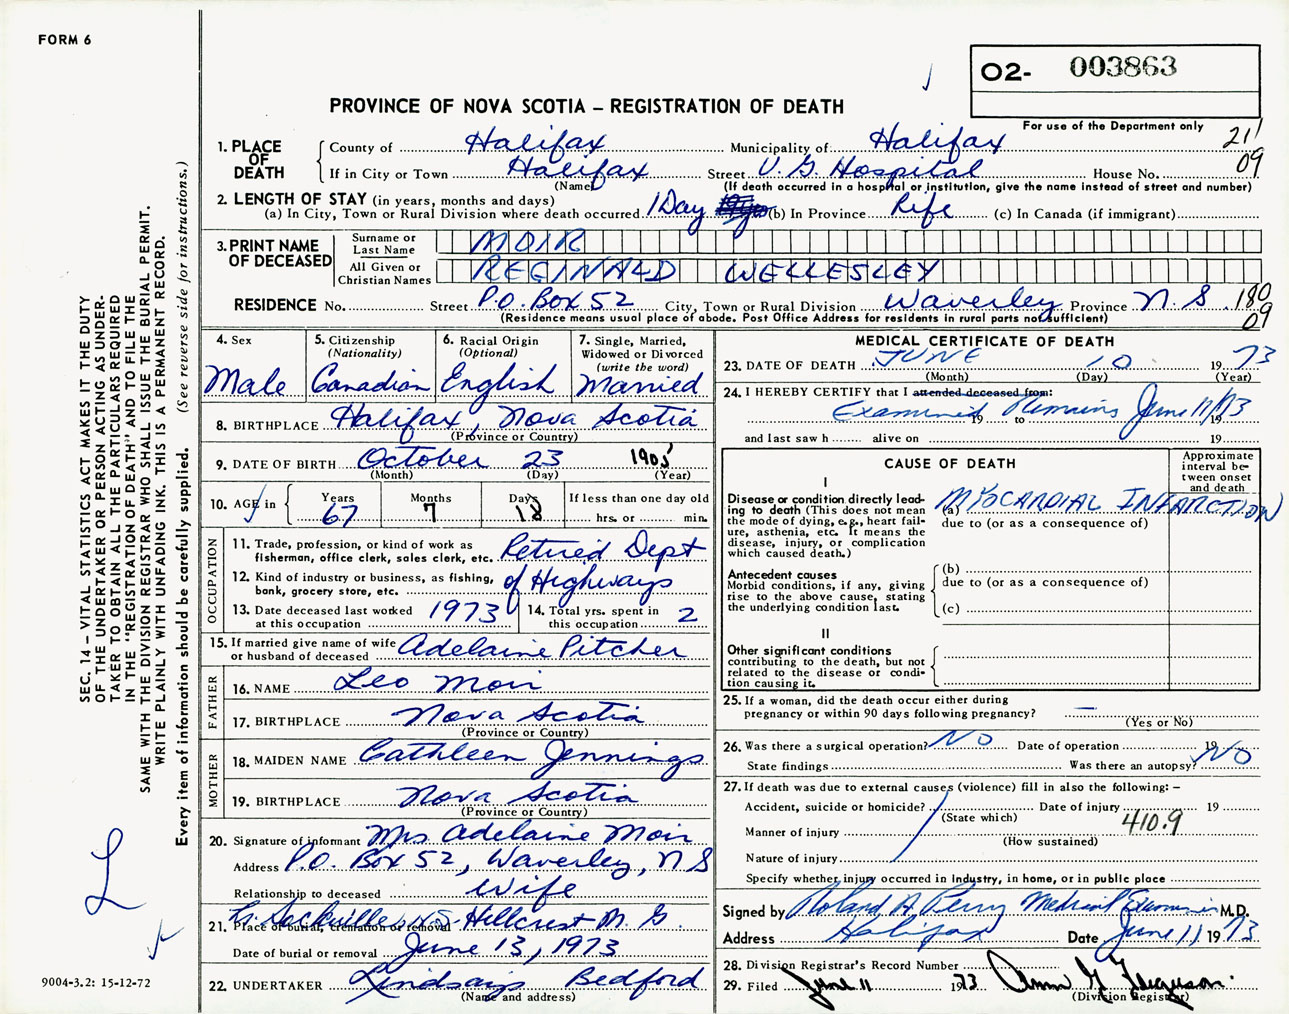 FORM 6
O2- 003863
PROVINCE OF NOVA SCOTIA – REGISTRATION OF DEATH
For use of the Department only
21
09
1. PLACE OF DEATH
County of Halifax Municipality of Halifax
If in City or Town Halifax Street V. G. Hospital House No.
(Name) (If death occurred in a hospital or institution, give the name instead of street and number)
2. LENGTH OF STAY (in years, months and days)
(a) In City, Town or Rural Division where death occurred. 1 Day (b) In Province Life (c) In Canada (if immigrant)
3. PRINT NAME OF DECEASED
Surname or Last Name MOIR
All Given or Christian Names REGINALD WELLESLEY
RESIDENCE No. Street P.O. Box 52 City, Town or Rural Division Waverley Province N.S. 180
09
(Residence means usual place of abode. Post Office Address for residents in rural parts not sufficient)
4. Sex
Male
5. Citizenship
(Nationality)
Canadian
6. Racial Origin
(Optional)
English
7. Single, Married, Widowed or Divorced
(write the word)
Married
8. BIRTHPLACE Halifax, Nova Scotia
(Province or Country)
9. DATE OF BIRTH October 23 1905
(Month) (Day) (Year)
10. AGE in
Years 67
Months 7
Days 18
If less than one day old
hrs. or min.
OCCUPATION
11. Trade, profession, or kind of work as fisherman, office clerk, sales clerk, etc. Retired Dept
12. Kind of industry or business, as fishing, bank, grocery store, etc. of Highways
13. Date deceased last worked at this occupation 1973
14. Total yrs. spent in this occupation 2
15. If married give name of wife or husband of deceased Adelaine Pitcher
FATHER
16. NAME Leo Moir
17. BIRTHPLACE Nova Scotia
(Province or Country)
MOTHER
18. MAIDEN NAME Cathleen Jennings
19. BIRTHPLACE Nova Scotia
(Province or Country)
20. Signature of informant Mrs Adelaine Moir
Address P.O. Box 52, Waverley, N S
Relationship to deceased Wife
21. Place of burial, cremation or removal Sackville N.S. Hillcrest M. G.
Date of burial or removal June 13, 1973
22. UNDERTAKER Lindsays Bedford
(Name and address)
MEDICAL CERTIFICATE OF DEATH
23. DATE OF DEATH JUNE 10 1973
(Month) (Day) (Year)
24. I HEREBY CERTIFY that I attended deceased from:
Examined Remains June 11/73
19 to 19
and last saw h alive on 19
CAUSE OF DEATH
Approximate interval between onset and death
I
Disease or condition directly leading to death (This does not mean the mode of dying, e.g., heart failure, asthenia, etc. It means the disease, injury, or complication which caused death.)
(a) MYOCARDIAL INFARCTION
due to (or as a consequence of)
Antecedent causes
Morbid conditions, if any, giving rise to the above cause, stating the underlying condition last.
(b)
due to (or as a consequence of)
(c)
II
Other significant conditions
contributing to the death, but not related to the disease or condition causing it.
25. If a woman, did the death occur either during pregnancy or within 90 days following pregnancy? —
(Yes or No)
26. Was there a surgical operation? NO Date of operation 19
State findings Was there an autopsy? NO
27. If death was due to external causes (violence) fill in also the following: –
Accident, suicide or homicide? Date of injury 19
(State which)
410.9
Manner of injury
(How sustained)
Nature of injury
Specify whether injury occurred in industry, in home, or in public place
Signed by Roland A Perry Medical Examiner M.D.
Address Halifax Date June 11 1973
28. Division Registrar's Record Number
29. Filed June 11 1973 Ann G Ferguson
(Division Registrar)
SEC. 14 – VITAL STATISTICS ACT MAKES IT THE DUTY
OF THE UNDERTAKER OR PERSON ACTING AS UNDER-
TAKER TO OBTAIN ALL THE PARTICULARS REQUIRED
IN THE "REGISTRATION OF DEATH" AND TO FILE THE
SAME WITH THE DIVISION REGISTRAR WHO SHALL ISSUE THE BURIAL PERMIT.
WRITE PLAINLY WITH UNFADING INK. THIS IS A PERMANENT RECORD.
Every item of information should be carefully supplied. (See reverse side for instructions.)
L
9004-3.2: 15-12-72